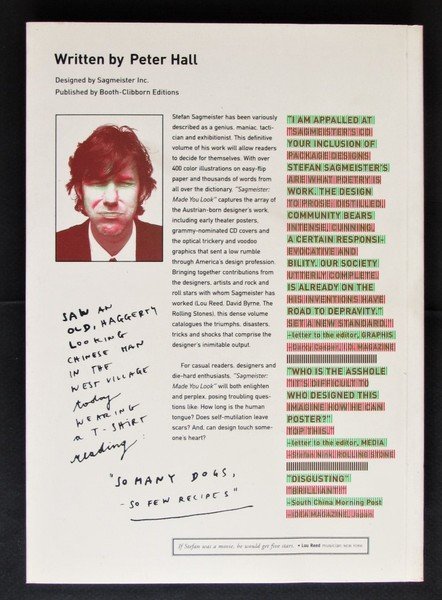 Written by Peter Hall
Designed by Sagmeister Inc.
Published by Booth-Clibborn Editions
Stefan Sagmeister has been variously
described as a genius, maniac, tacti-
cian and exhibitionist. This definitive
volume of his work will allow readers
to decide for themselves. With over
400 color illustrations on easy-flip
paper and thousands of words from
all over the dictionary, "Sagmeister:
Made You Look" captures the array of
the Austrian-born designer's work:
including early theater posters,
grammy-nominated CD covers and
the optical trickery and voodoo
graphics that sent a low rumble
through America's design profession.
Bringing together contributions from
the designers, artists and rock and
roll stars with whom Sagmeister has
worked (Lou Reed, David Byrne, The
Rolling Stones), this dense volume
catalogues the triumphs, disasters,
tricks and shocks that comprise the
designer's inimitable output.
For casual readers, designers and
die-hard enthusiasts, "Sagmeister:
Made You Look" will both enlighten
and perplex, posing troubling ques-
tions like: How long is the human
tongue? Does self-mutilation leave
scars? And, can design touch some-
one's heart?
"I AM APPALLED AT
"SAGMEISTER'S CD
YOUR INCLUSION OF
PACKAGE DESIGNS
STEFAN SAGMEISTER'S
ARE WHAT POETRY IS
WORK. THE DESIGN
TO PROSE. DISTILLED,
COMMUNITY BEARS
INTENSE, CUNNING,
A CERTAIN RESPONSI-
EVOCATIVE AND
BILITY. OUR SOCIETY
UTTERLY COMPLETE.
IS ALREADY ON THE
HIS INVENTIONS HAVE
ROAD TO DEPRAVITY."
SET A NEW STANDARD."
–letter to the editor, GRAPHIS
–Darcy Cosper, I.D. MAGAZINE
"WHO IS THE ASSHOLE
"IT'S DIFFICULT TO
WHO DESIGNED THIS
IMAGINE HOW HE CAN
POSTER?"
TOP THIS."
–letter to the editor, MEDIA
–Stefan Nink, ROLLING STONE
"DISGUSTING"
"BRILLIANT!"
–South China Morning Post
–IDEA MAGAZINE, Japan
SAW AN
OLD, HAGGERTY
LOOKING
CHINESE MAN
IN THE
WEST VILLAGE
today
WEARING
a T-SHIRT
reading:
"SO MANY DOGS,
-SO FEW RECIPES"
If Stefan was a movie, he would get five stars. • Lou Reed MUSICIAN, NEW YORK